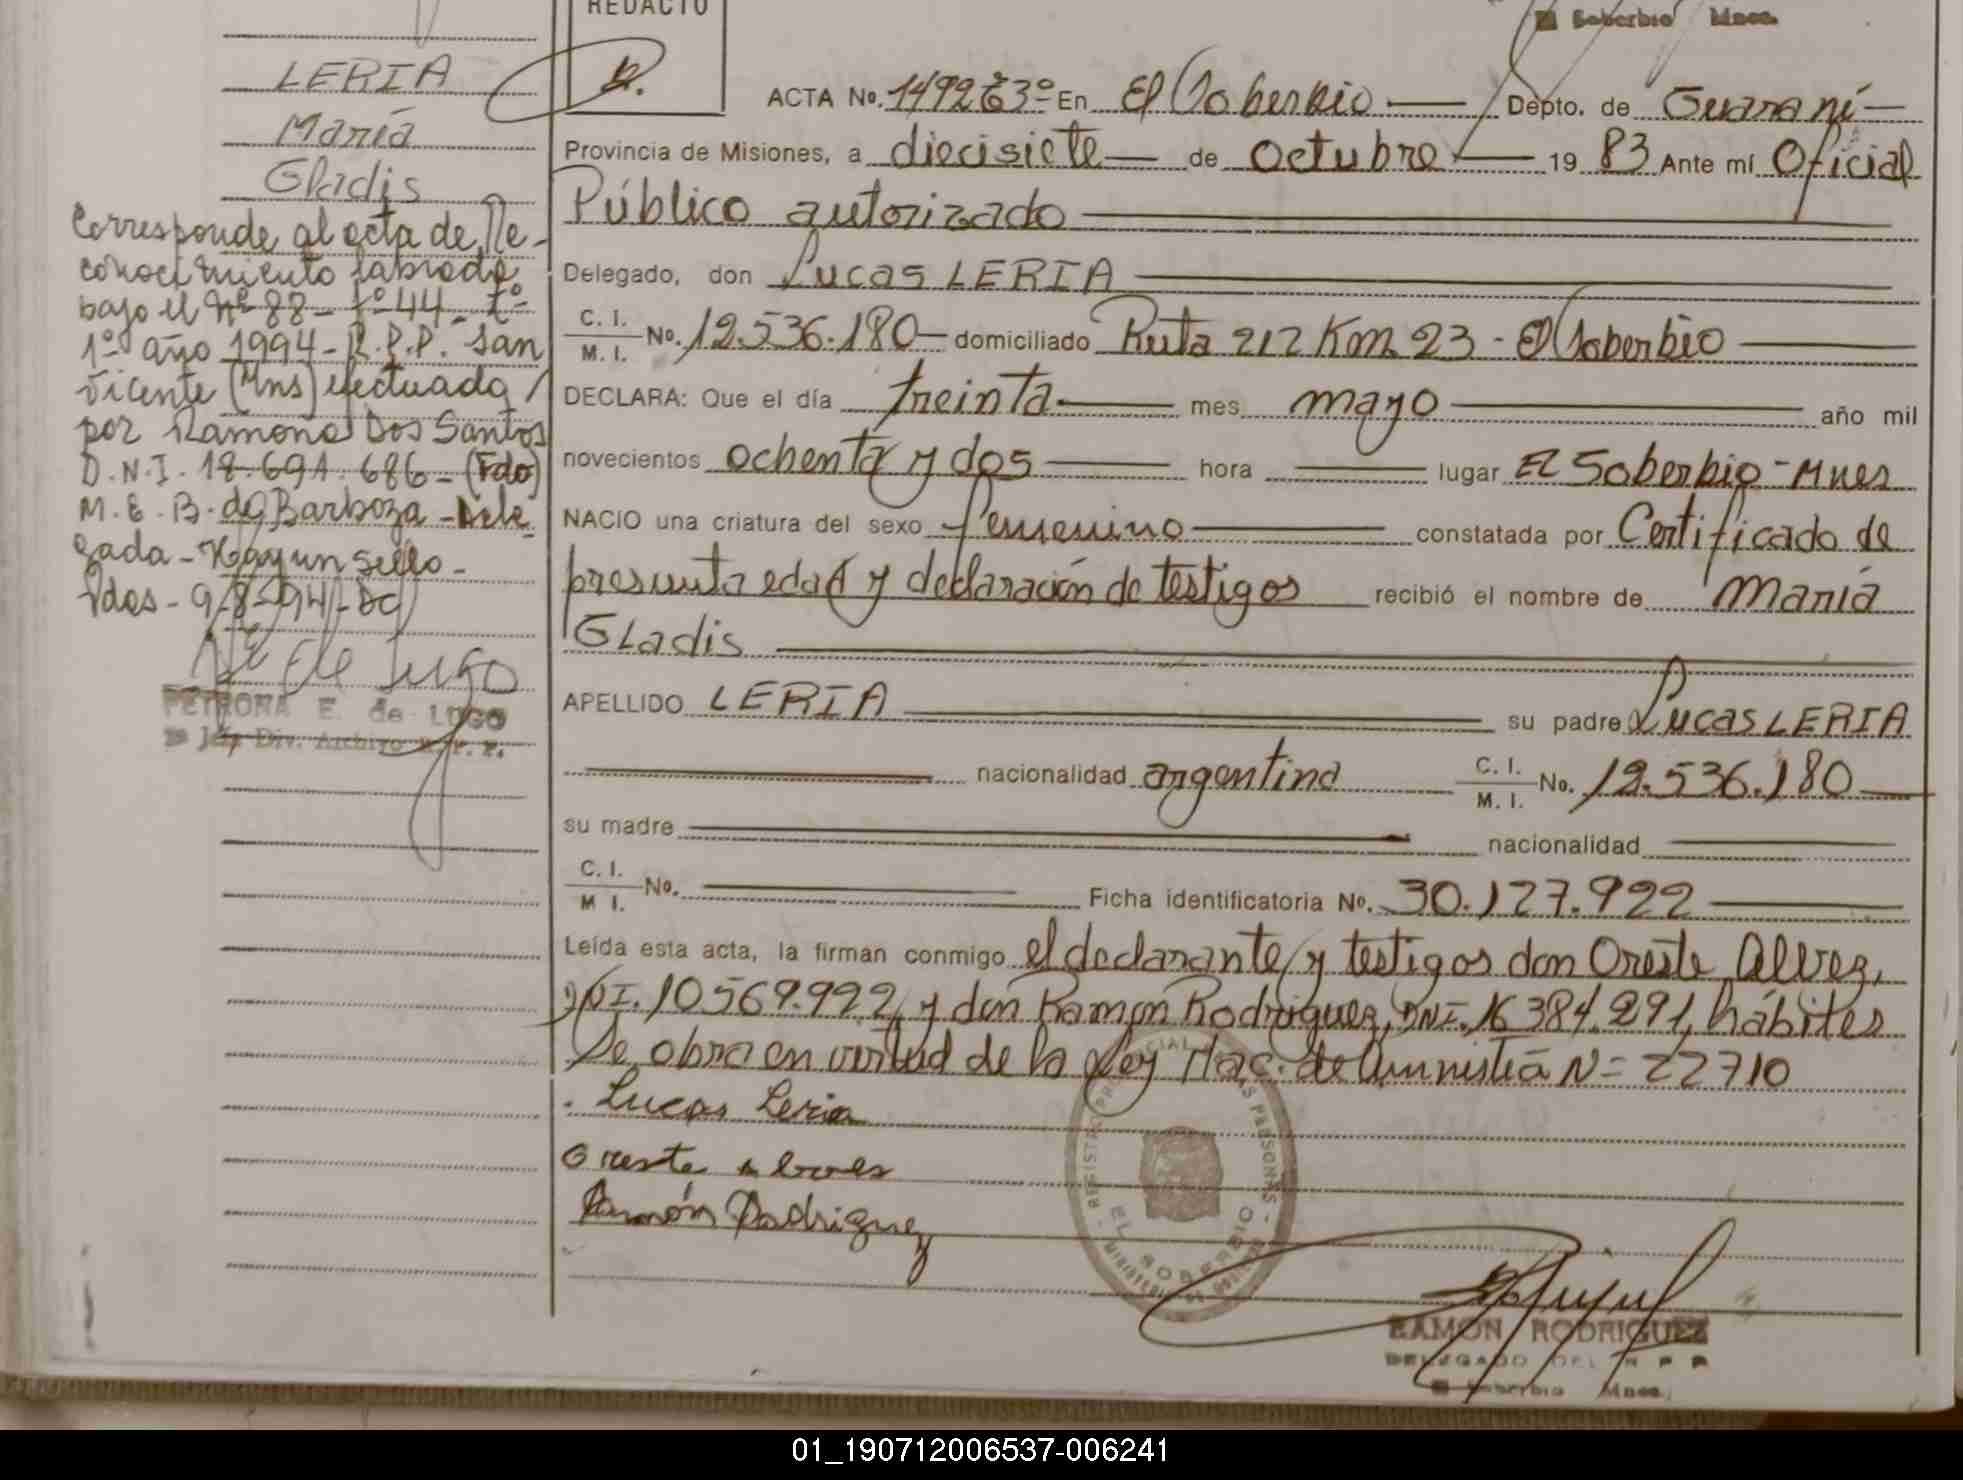 REDACTO
Soberbio Mnes.
LERIA
María
Gladis
Corresponde al acta de Re-
conocimiento labrada
bajo el Nº 88 - Fº 44 - Tº
1º año 1994 - R.P.P. San
Vicente (Mns) efectuada
por Ramona Dos Santos
D.N.I. 18.691.686 - (Fdo)
M.E.B. de Barboza - Dele
gada - Hay un sello -
Pdas - 9-8-94 -
de Lugo
PETRONA E. de LUGO
Jefe Div. Archivo R. P. P.
ACTA No. 1492 T3º En El Soberbio Depto. de Guaraní
Provincia de Misiones, a diecisiete de Octubre 19 83 Ante mí Oficial
Público autorizado
Delegado, don Lucas LERIA
C. I. / M. I. No. 12.536.180 domiciliado Ruta 212 Km 23 - El Soberbio
DECLARA: Que el día treinta mes mayo año mil
novecientos ochenta y dos hora lugar El Soberbio - Mnes
NACIO una criatura del sexo femenino constatada por Certificado de
presunta edad y declaración de testigos recibió el nombre de María
Gladis
APELLIDO LERIA su padre Lucas LERIA
nacionalidad argentina C. I. / M. I. No. 12.536.180
su madre nacionalidad
C. I. / M I. No. Ficha identificatoria No. 30.127.922
Leída esta acta, la firman conmigo el declarante y testigos don Oreste Alvez,
DNI. 10.569.992 y don Ramon Rodriguez, DNI. 16.384.291, hábiles
Se obra en virtud de la Ley Nac. de Amnistia N= 22710
Lucas Leria
Oreste Alves
Ramón Rodriguez
REGISTRO PROVINCIAL DE LAS PERSONAS
EL SOBERBIO
RAMON RODRIGUEZ
DELEGADO DEL R P P
Soberbio Mnes.
01_190712006537-006241